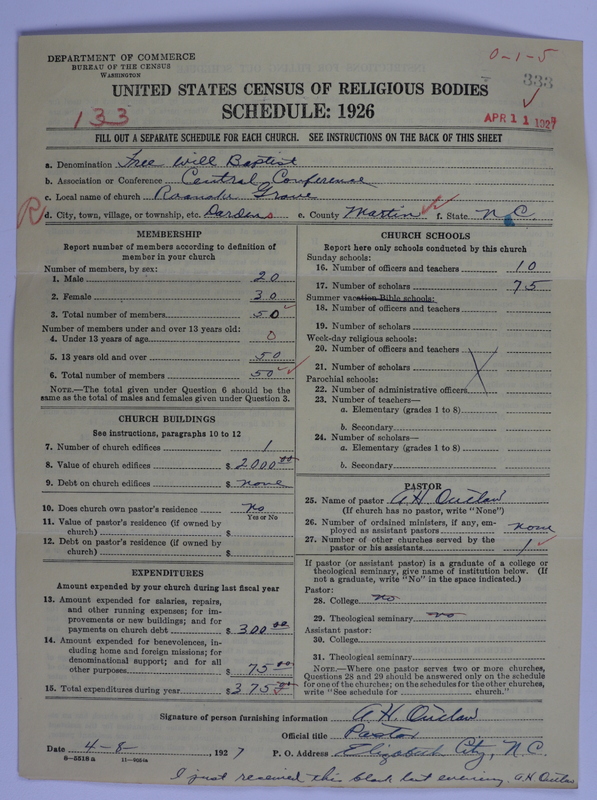 DEPARTMENT OF COMMERCE
BUREAU OF THE CENSUS
WASHINGTON
0-1-5
333
UNITED STATES CENSUS OF RELIGIOUS BODIES
SCHEDULE: 1926
133
APR 11 1927
FILL OUT A SEPARATE SCHEDULE FOR EACH CHURCH. SEE INSTRUCTIONS ON THE BACK OF THIS SHEET
a. Denomination Free Will Baptist
b. Association or Conference Central Conference
c. Local name of church Roanoke Grove
R d. City, town, village, or township, etc. Dardens e. County Martin f. State N.C.
MEMBERSHIP
Report number of members according to definition of
member in your church
Number of members, by sex:
1. Male 20
2. Female 30
3. Total number of members 50
Number of members under and over 13 years old:
4. Under 13 years of age 0
5. 13 years old and over 50
6. Total number of members 50
NOTE.—The total given under Question 6 should be the
same as the total of males and females given under Question 3.
CHURCH BUILDINGS
See instructions, paragraphs 10 to 12
7. Number of church edifices 1
8. Value of church edifices $ 2000.00
9. Debt on church edifices $ none
10. Does church own pastor's residence? No
Yes or No
11. Value of pastor's residence (if owned by
church) $
12. Debt on pastor's residence (if owned by
church) $
EXPENDITURES
Amount expended by your church during last fiscal year
13. Amount expended for salaries, repairs,
and other running expenses; for im-
provements or new buildings; and for
payments on church debt $ 300.00
14. Amount expended for benevolences, in-
cluding home and foreign missions; for
denominational support; and for all
other purposes $ 75.00
15. Total expenditures during year $ 375
CHURCH SCHOOLS
Report here only schools conducted by this church
Sunday schools:
16. Number of officers and teachers 10
17. Number of scholars 75
Summer vacation Bible schools:
18. Number of officers and teachers
19. Number of scholars
Week-day religious schools:
20. Number of officers and teachers
21. Number of scholars
Parochial schools:
22. Number of administrative officers
23. Number of teachers—
a. Elementary (grades 1 to 8)
b. Secondary
24. Number of scholars—
a. Elementary (grades 1 to 8)
b. Secondary
PASTOR
25. Name of pastor A H Outlaw
(If church has no pastor, write "None")
26. Number of ordained ministers, if any, em-
ployed as assistant pastors none
27. Number of other churches served by the
pastor or his assistants 1
If pastor (or assistant pastor) is a graduate of a college or
theological seminary, give name of institution below. (If
not a graduate, write "No" in the space indicated.)
Pastor:
28. College no
29. Theological seminary no
Assistant pastor:
30. College
31. Theological seminary
NOTE.—Where one pastor serves two or more churches,
Questions 28 and 29 should be answered only on the schedule
for one of the churches; on the schedules for the other churches,
write "See schedule for church."
Signature of person furnishing information A. H. Outlaw
Official title Pastor
Date 4-8-, 1927 P. O. Address Elizabeth City, N.C.
8-5518 a
I just received this blank last evening. A H Outlaw